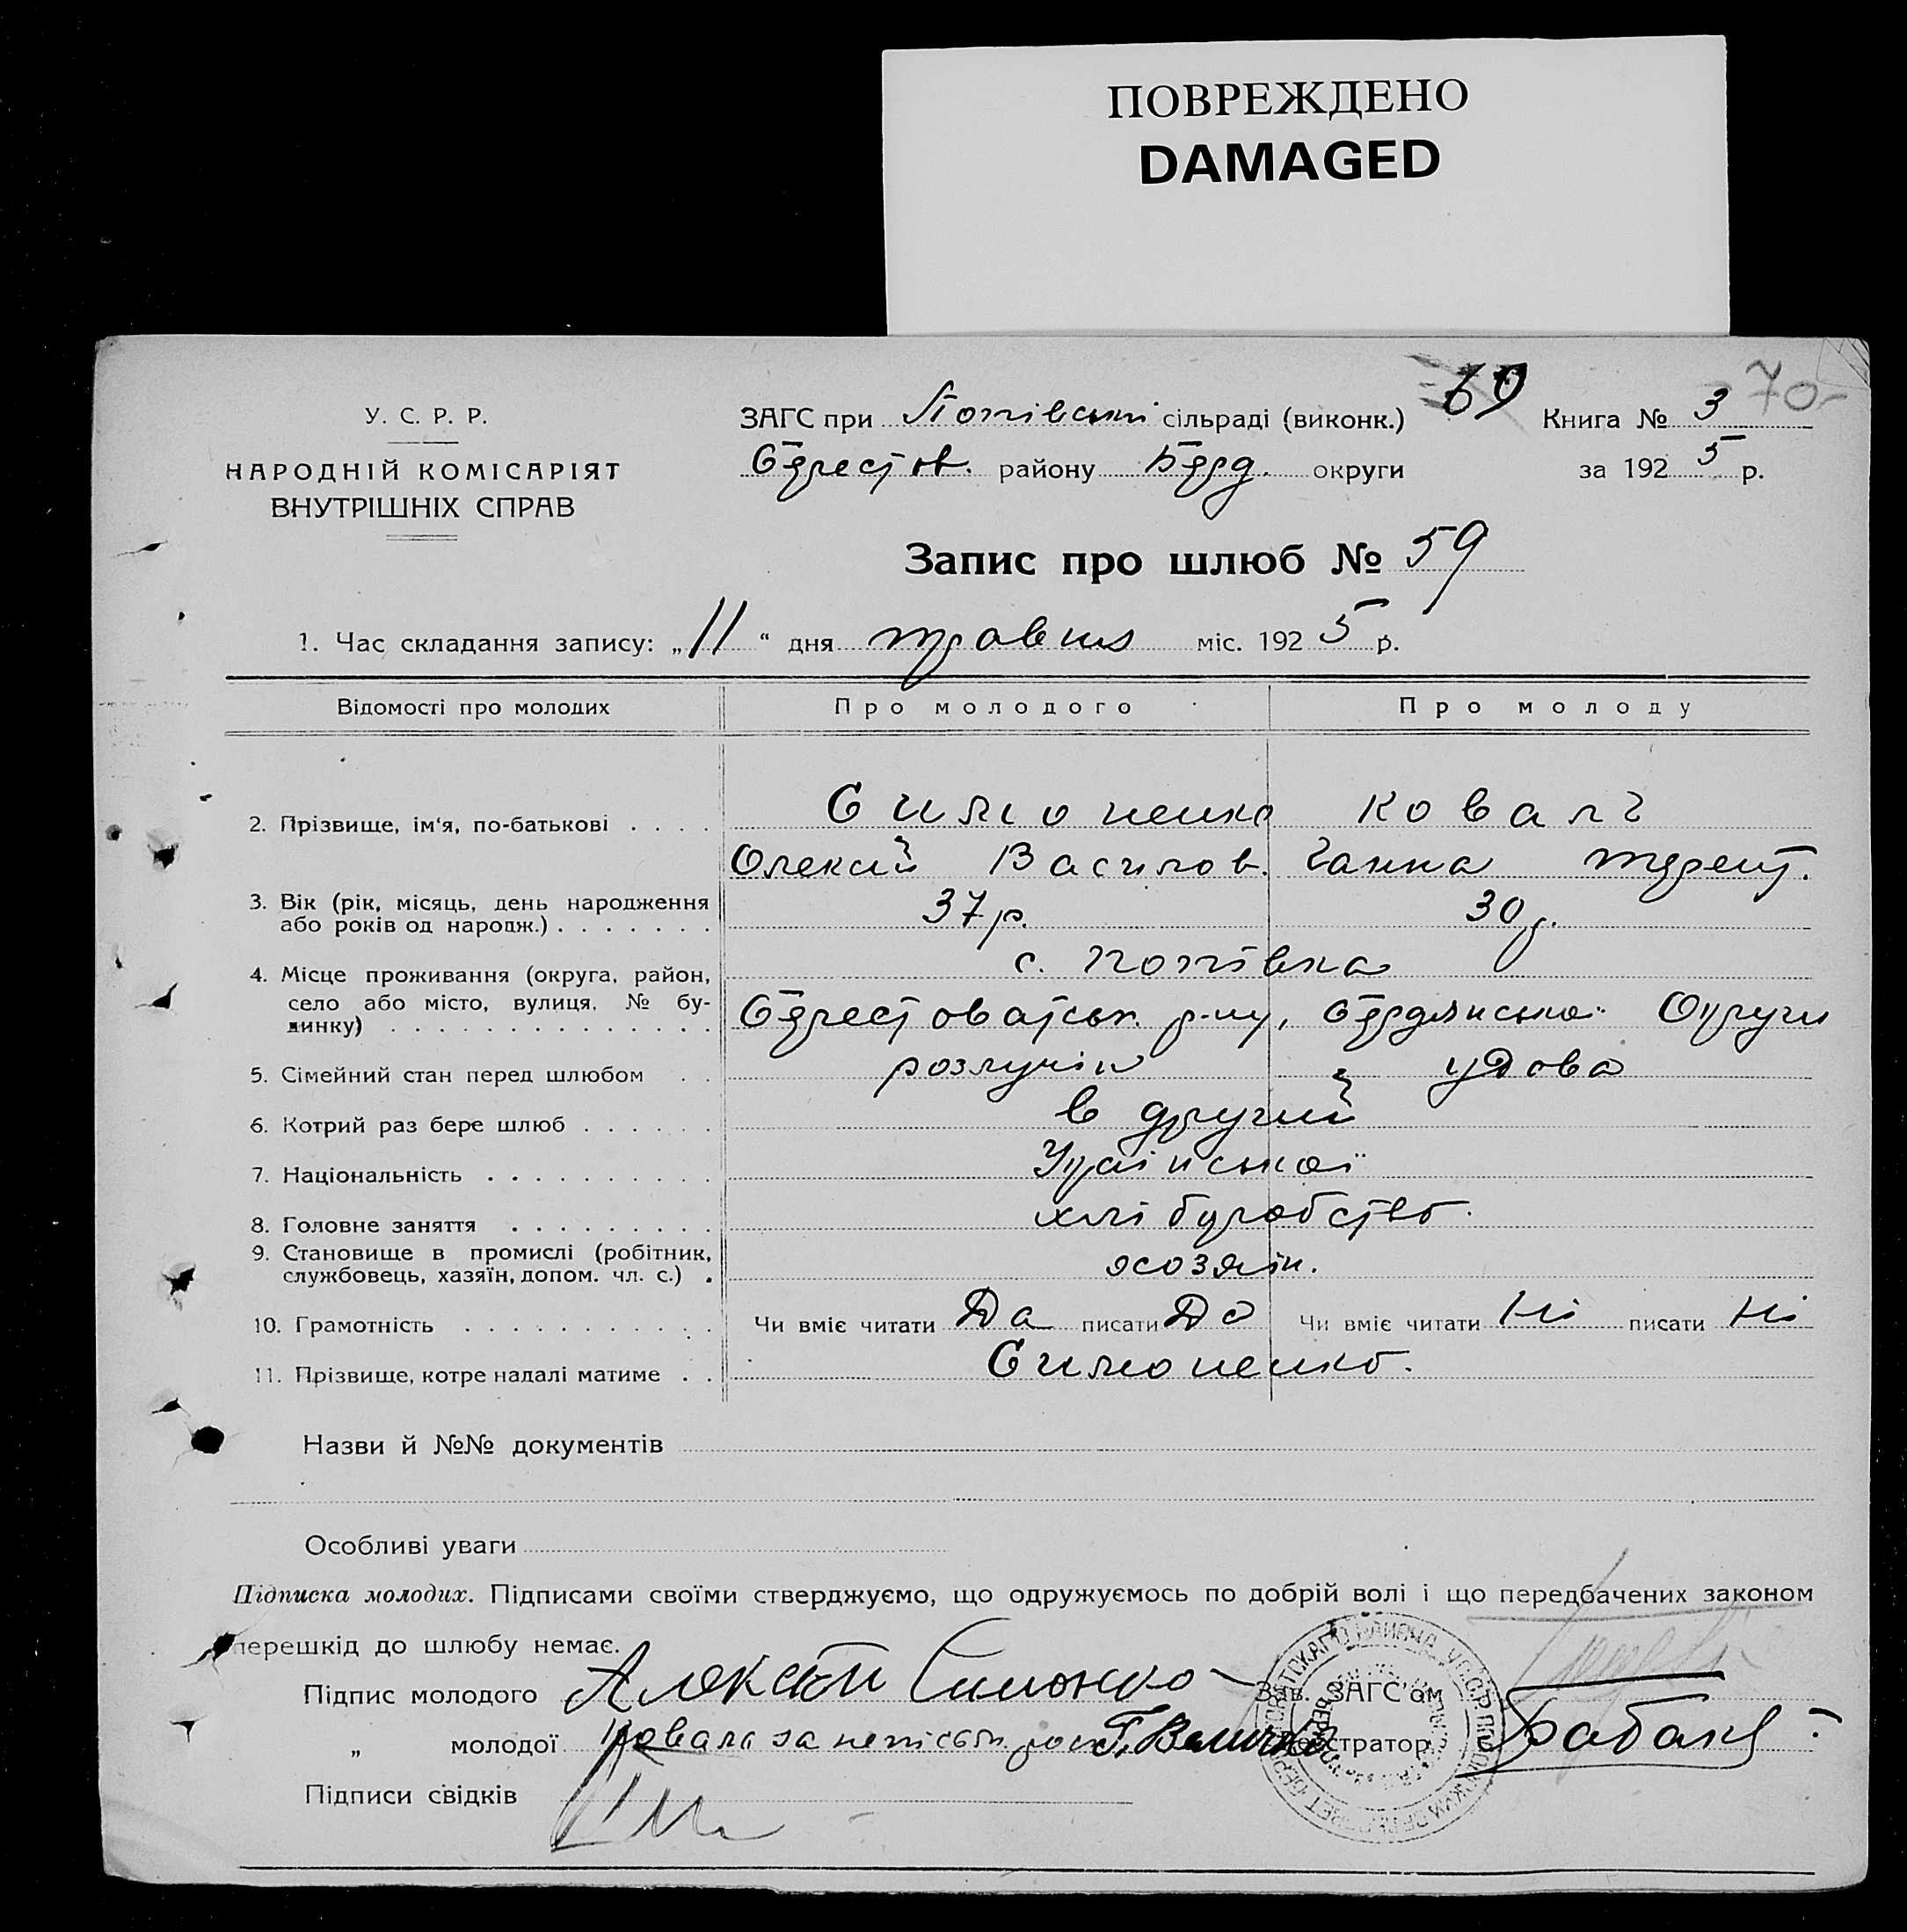 ПОВРЕЖДЕНО
DAMAGED
69 70
У. С. Р. Р.
НАРОДНІЙ КОМІСАРІЯТ
ВНУТРІШНІХ СПРАВ
ЗАГС при Попівській сільраді (виконк.) Книга № 3
Берестов. району Берд. округи за 1925 р.
Запис про шлюб № 59
1. Час складання запису: „11“ дня травня міс. 1925 р.
Відомості про молодих Про молодого Про молоду
2. Прізвище, ім'я, по-батькові Симоненко Коваль
Олексій Василов. Ганна Терент.
3. Вік (рік, місяць, день народження
або років од народж.) 37 р. 30 р.
4. Місце проживання (округа, район, с. Попівка
село або місто, вулиця, № бу-
динку) Берестоватськ. р-ну, Бердянської Округи
5. Сімейний стан перед шлюбом розлучін удова
6. Котрий раз бере шлюб в другий
7. Національність Української
8. Головне заняття хліборобство.
9. Становище в промислі (робітник,
службовець, хазяїн, допом. чл. с.) хозяїн.
10. Грамотність Чи вміє читати Да писати Да Чи вміє читати Ні писати Ні
11. Прізвище, котре надалі матиме Симоненко.
Назви й №№ документів
Особливі уваги
Підписка молодих. Підписами своїми стверджуємо, що одружуємось по добрій волі і що передбачених законом
перешкід до шлюбу немає.
Підпис молодого Алексей Симонко Зав. ЗАГС'ом
„ молодої Коваль за неписьм. Реєстратор
Підписи свідків